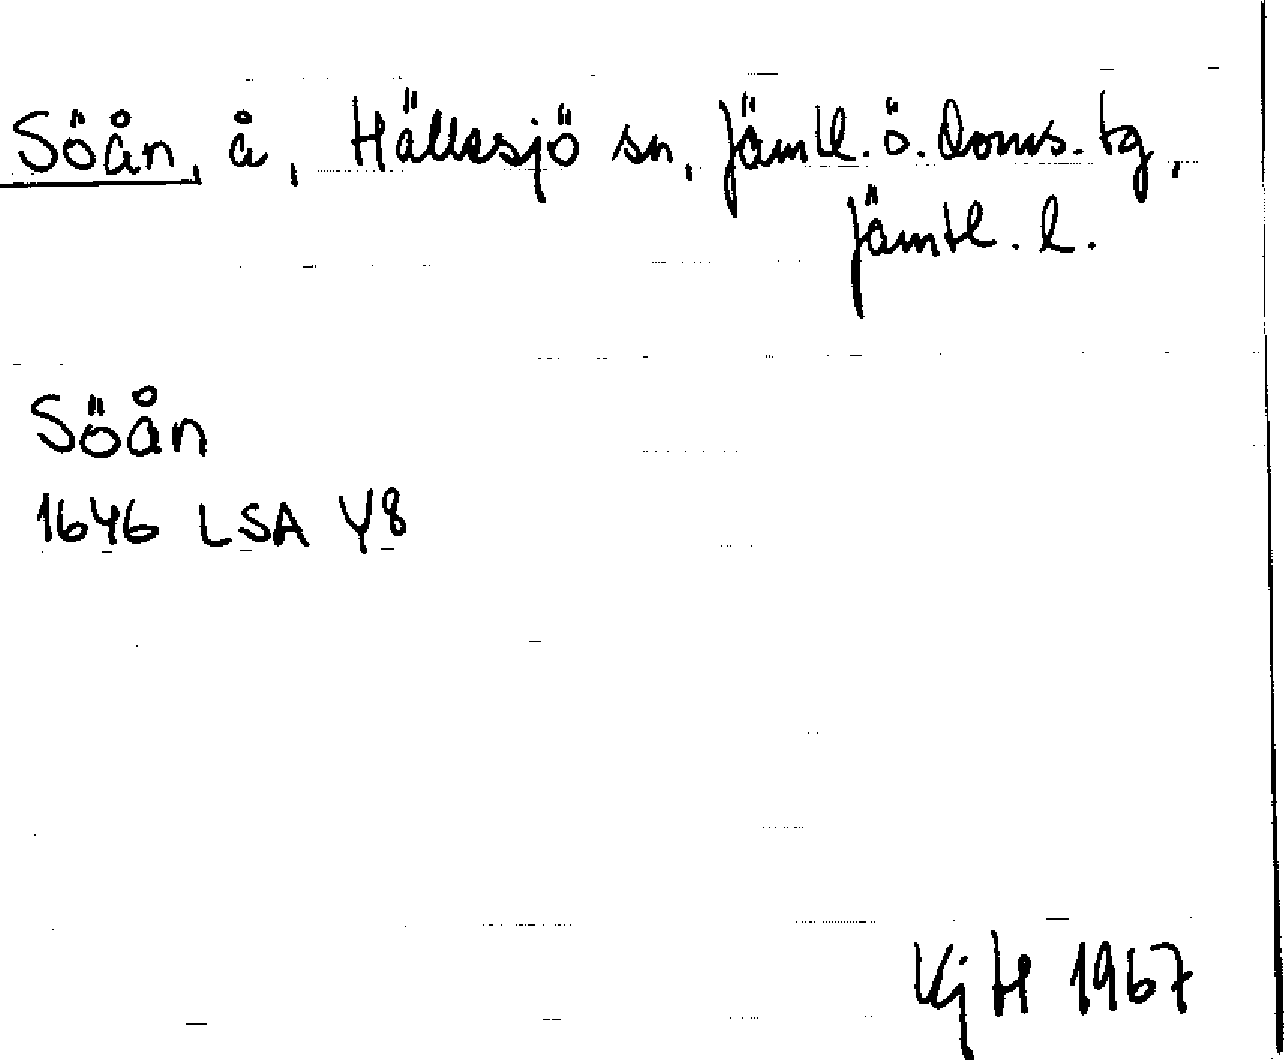 Söån, å, Hällesjö sn, Jämtl. ö. Doms. tg,
Jämtl. l.
Söån
1646 LSA Y8
Kj H 1967